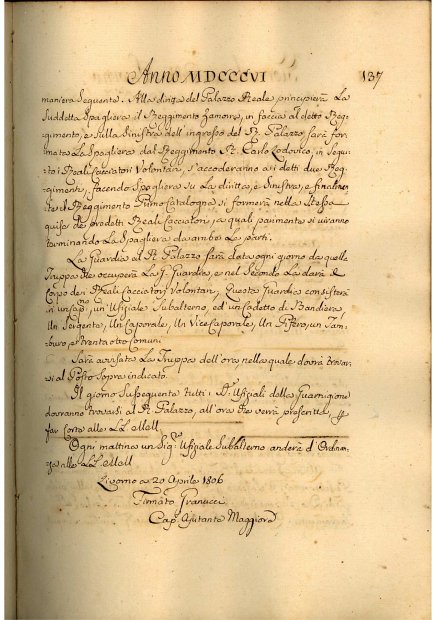 Anno MDCCCVI 137
maniera Seguente. Alla dirga del Palazzo Reale principierà La
Suddetta Spagliera il Reggimento Zamora, in faccia al detto Reg-
gimento, e sulla Sinistra dell'ingresso del R. Palazzo, sarà for-
mata La Spagliera dal Reggimento R. Carlo Lodovico, in Segui-
to i Reali Cacciatori Volontari, s'accoderanno a i detti due Reg-
gimenti, facendo Spagliera su La diritta, e Sinistra, e finalmen-
te il Reggimento Primo Catalogna si formerà nella stessa
guisa de predetti Reali Cacciatori, a quali parimente si uniranno
terminando La Spagliera da ambe Le parti.
La Guardia al R. Palazzo sarà data ogni giorno da quella
Truppa che occuperà La Guardia, e nel Secondo La darà il
Corpo dei Reali Cacciatori Volontari, Questa Guardia consisterà
in un Cap.no, un Ufiziale Subalterno, ed un Cadetto di Bandiera,
Un Sergente, Un Caporale, Un Vice Caporale, Un Pifero, un Tam-
buro, e trenta otto Comuni
Sarà avvisata La Truppa dell'ora nella quale dovrà trovar-
si al Posto Sopra indicato.
Il giorno Susseguente tutti i Ufiziali della Guarnigione
dovranno trovarsi al R. Palazzo, all'ora che verrà prescritta, p
far Corte alle LL. MM.
Ogni mattina un Sig.r Ufiziale Subalterno anderà d'Ordinan-
za alle LL. MM.
Livorno a 20 Aprile 1806
Firmato Granucci
Cap.o Ajutante Maggiore